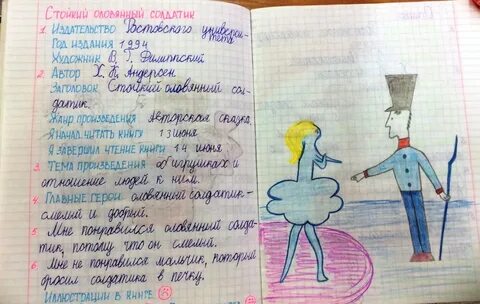 Стойкий оловянный солдатик
1. Издательство Ростовского университета
Год издания 1994
Художник В. Г. Филиппский
2. Автор Х. К. Андерсен
Заголовок Стойкий оловянный солдатик.
Жанр произведения Авторская сказка.
Я начал читать книгу 13 июня
Я завершил чтение книги 14 июня
3. Тема произведения об игрушках и
отношение людей к ним.
4. Главные герои оловянный солдатик-
смелый и добрый.
5. Мне понравился оловянный солда-
тик, потому что он смелый.
6. Мне не понравился мальчик, который
бросил солдатика в печку.
Иллюстрации в книге